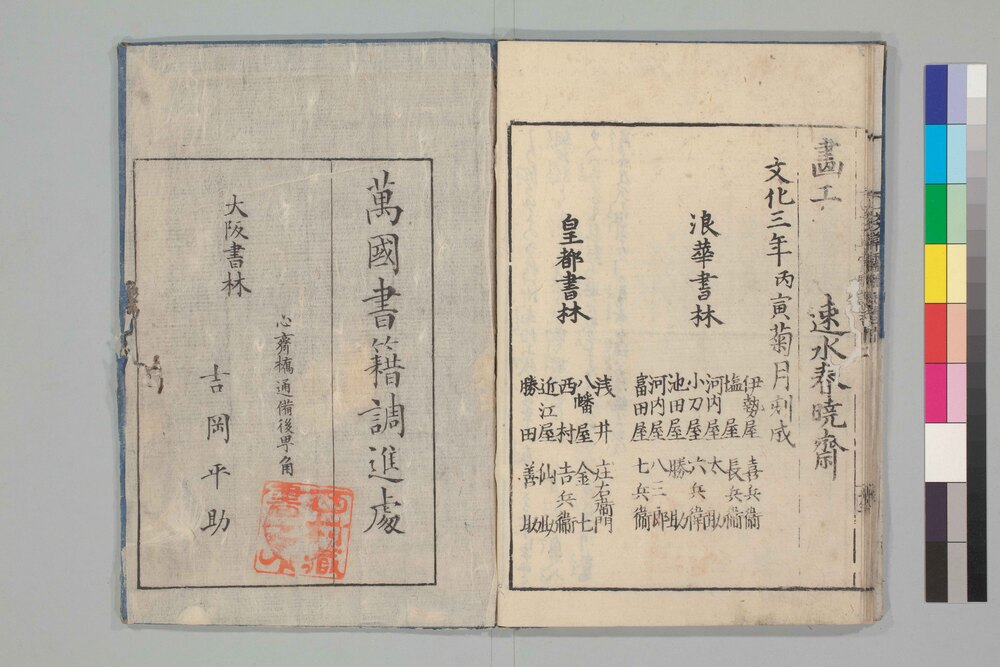 畫工 速水春曉齋
文化三年丙寅菊月刻成
浪華書林
伊勢屋 喜兵衞
塩屋 長兵衞
河内屋 太助
小刀屋 六兵衞
池田屋 勝助
河内屋 八三郎
富田屋 七兵衞
皇都書林
浅井 庄右衞門
八幡屋 金七
西村 吉兵衞
近江屋 仙助
勝田 善助
萬國書籍調進處
心齋橋通備後甼角
大阪書林
吉岡平助